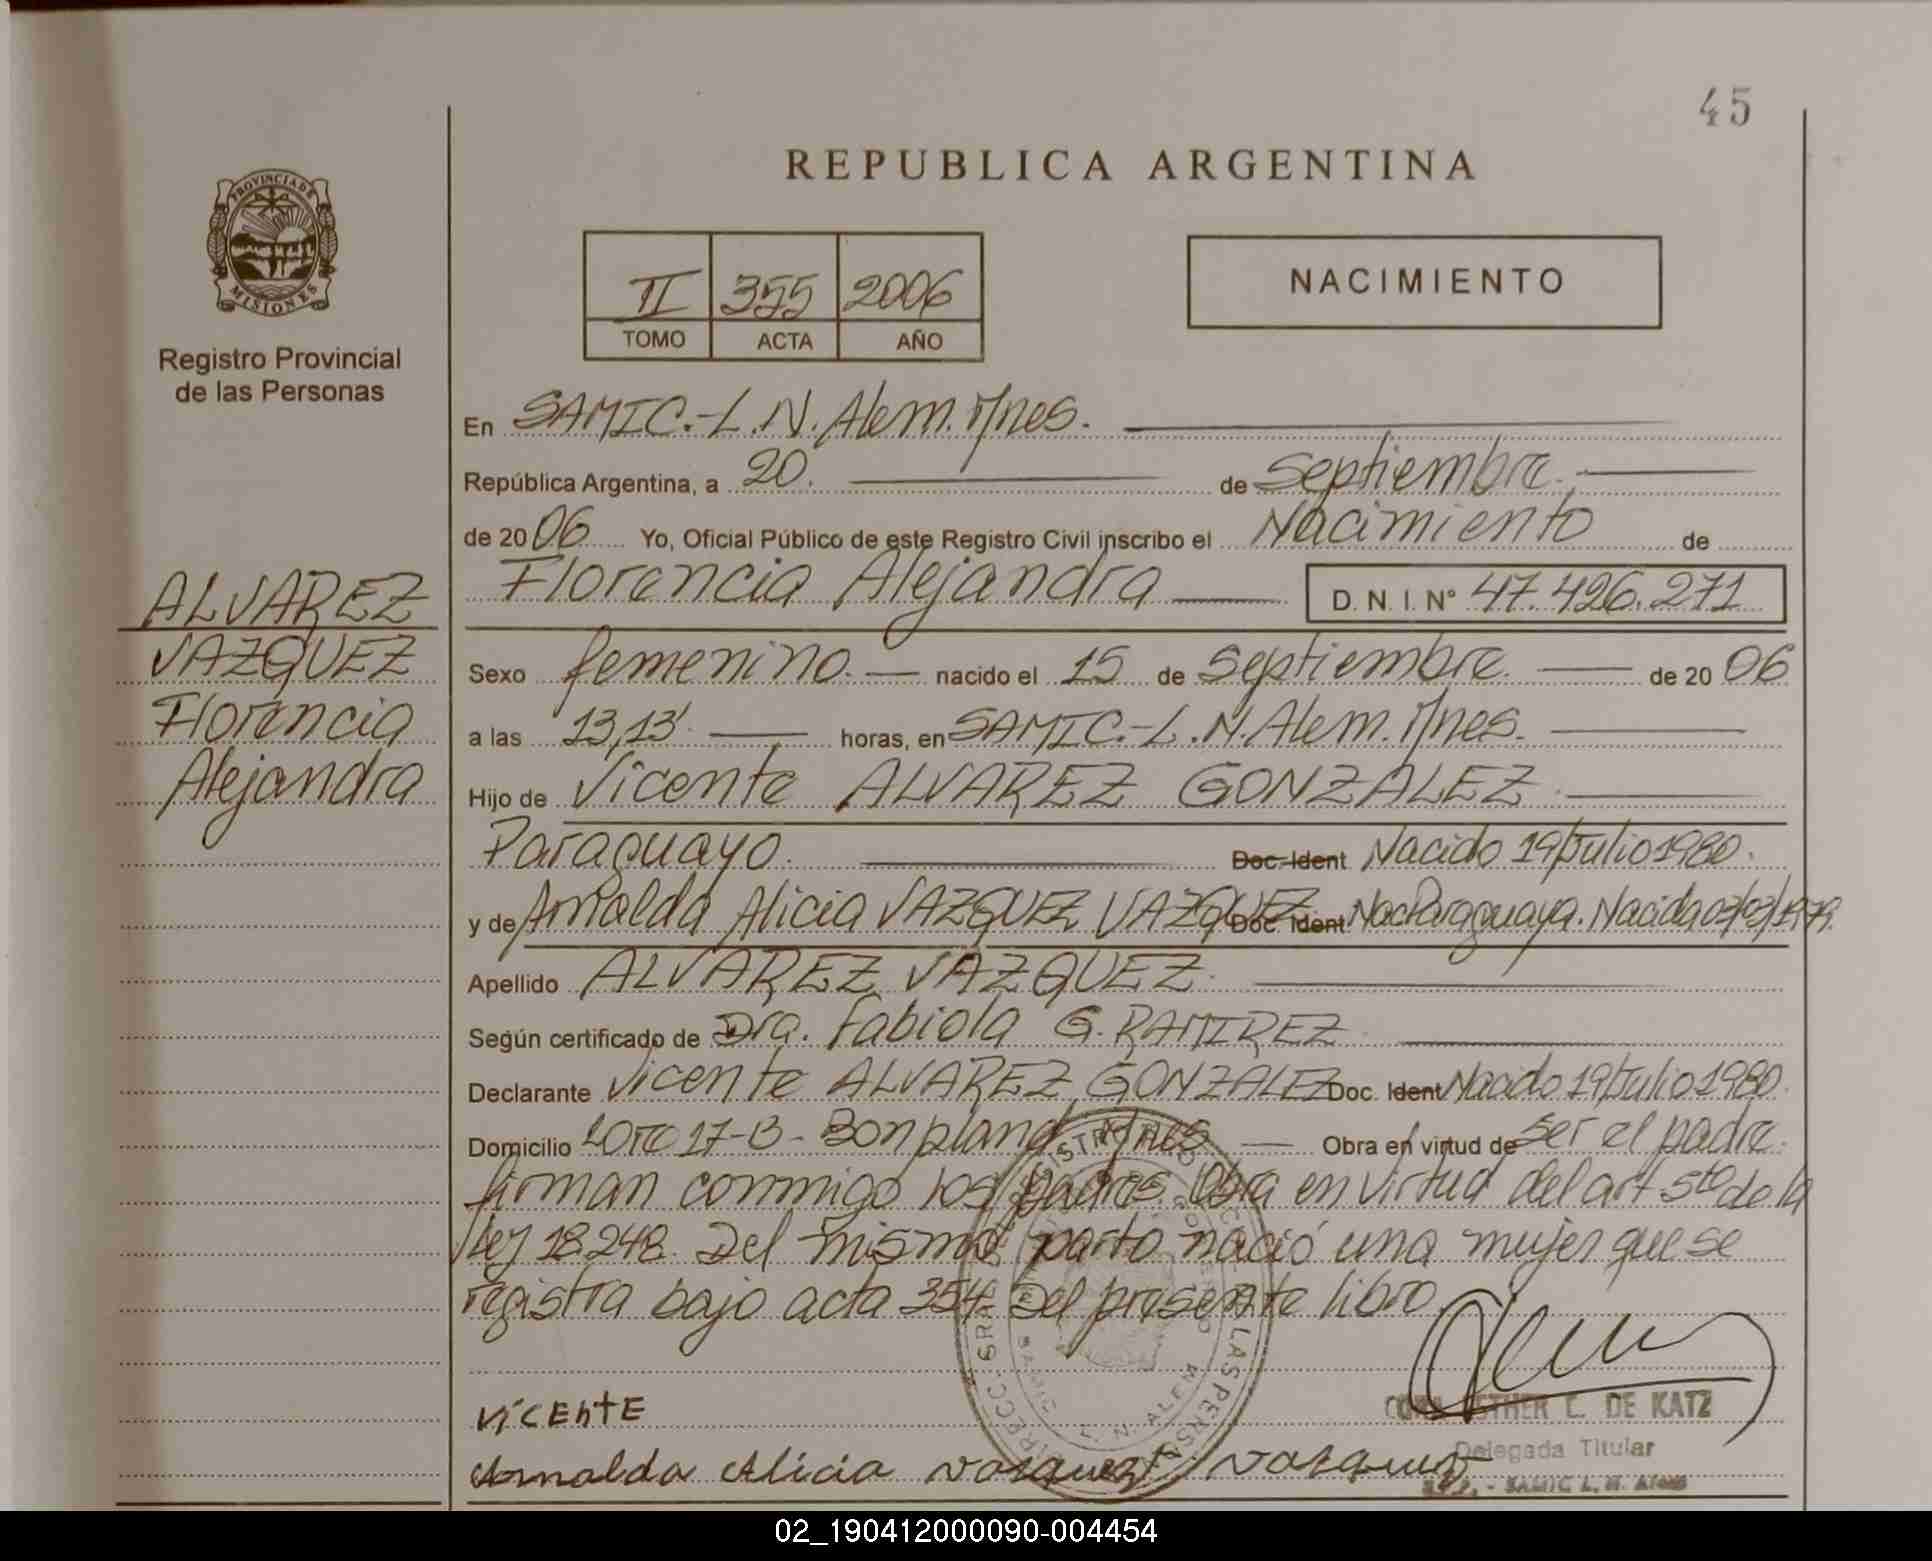 45
REPUBLICA ARGENTINA
PROVINCIA DE
MISIONES
Registro Provincial
de las Personas
II 355 2006
TOMO ACTA AÑO
NACIMIENTO
En SAMIC.-L.N.Alem.Mnes.
República Argentina, a 20. de Septiembre.
de 2006 Yo, Oficial Público de este Registro Civil inscribo el Nacimiento de
Florencia Alejandra D.N.I. N° 47.426.271
ALVAREZ
VAZQUEZ
Florencia
Alejandra
Sexo femenino. nacido el 15 de Septiembre de 2006
a las 13,13' horas, en SAMIC.-L.N.Alem.Mnes.
Hijo de Vicente ALVAREZ GONZALEZ
Paraguayo. Doc-Ident Nacido 19/Julio 1980.
y de Arnalda Alicia VAZQUEZ VAZQUEZ Doc. Ident Nac Paraguaya. Nacida 03/03/1979.
Apellido ALVAREZ VAZQUEZ
Según certificado de Dra. Fabiola G. RAMIREZ
Declarante Vicente ALVAREZ GONZALEZ Doc. Ident Nacido 19/Julio 1980.
Domicilio Lote 17-B - Bonpland Mnes Obra en virtud de Ser el padre.
firman conmigo los padres. Obra en virtud del art 5to de la
Ley 18.248. Del mismo parto nació una mujer que se
registra bajo acta 354 Del presente libro.
VicEntE
Arnalda Alicia Vazquez Vazquez
ESTHER C. DE KATZ
Delegada Titular
SAMIC L. N. Alem
02_190412000090-004454